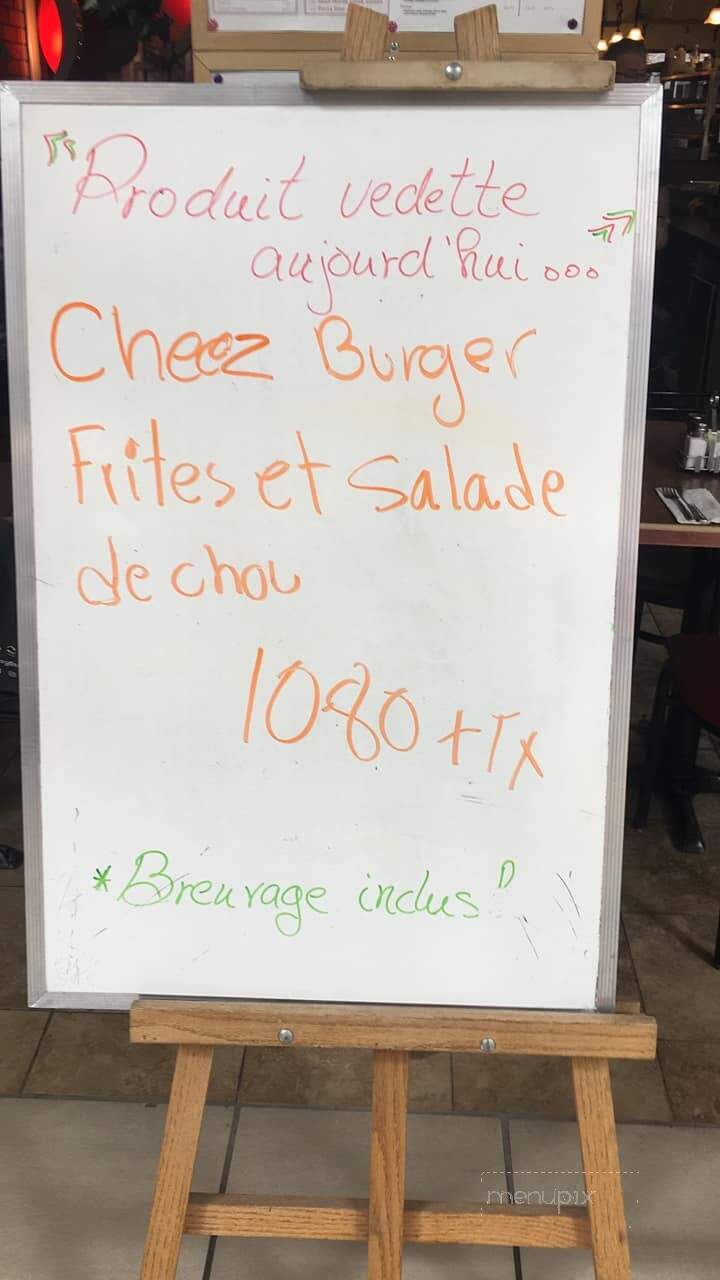 "Produit vedette
aujourd'hui...
Cheez Burger
Frites et salade
de chou
1080 + Tx
* Breuvage inclus"
menupix